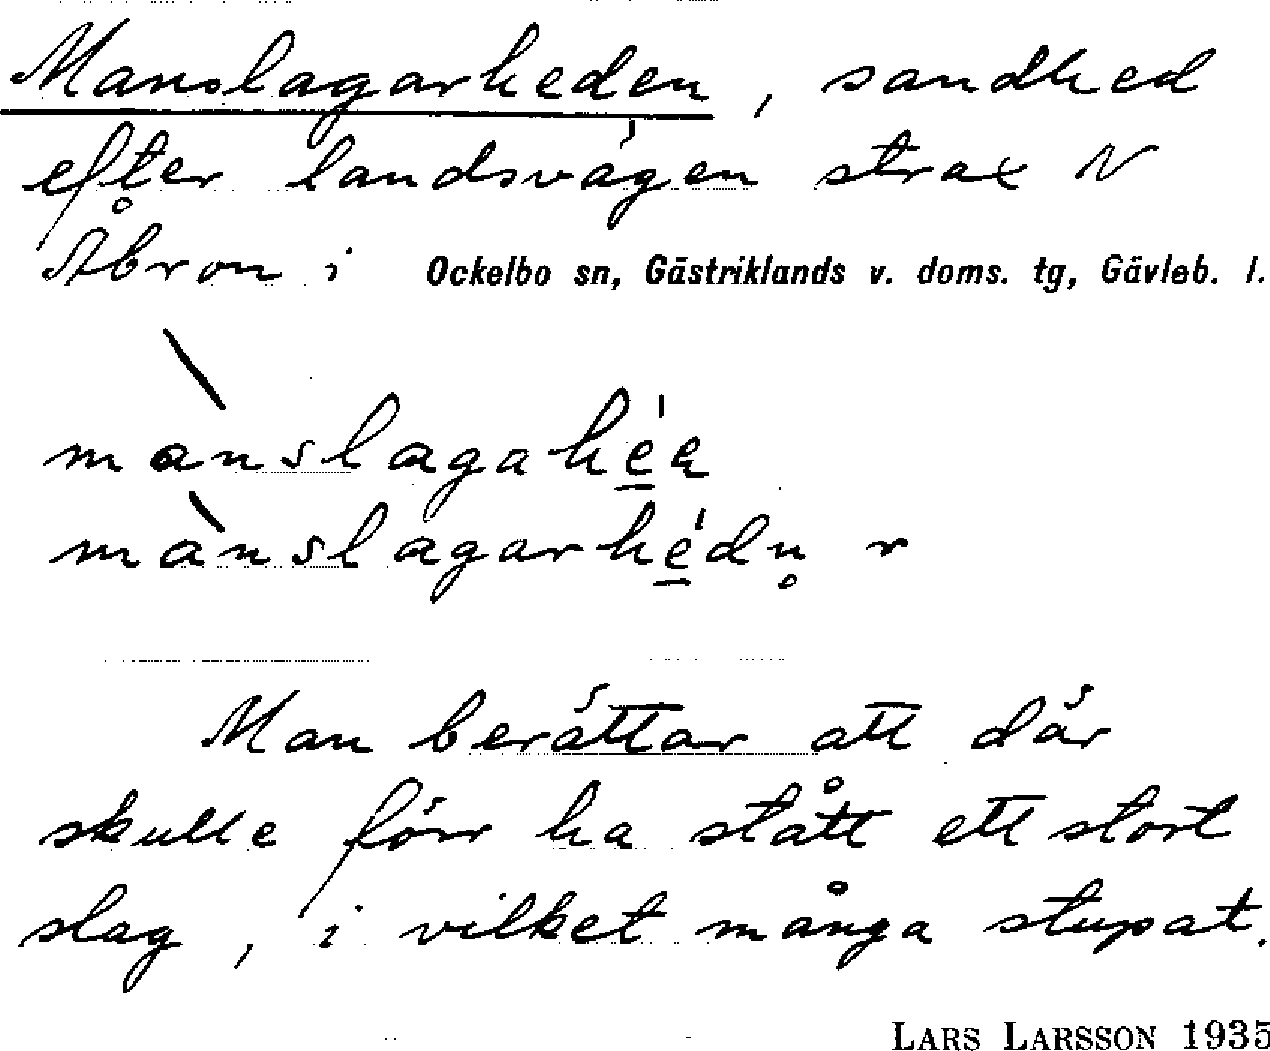 Manslagarheden, sandhed
efter landsvägen strax N
Åbron i Ockelbo sn, Gästriklands v. doms. tg, Gävleb. l.
mànslagahé̠ę
mànslagarhé̠dn̥ r
Man berättar att där
skulle förr ha stått ett stort
slag, i vilket många stupat.
LARS LARSSON 1935